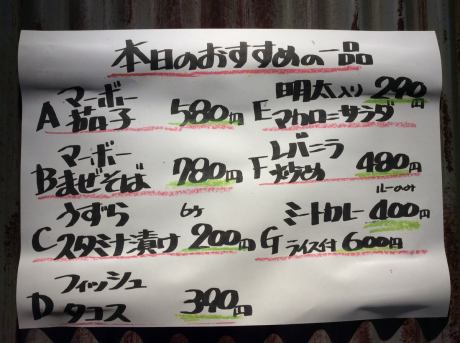 本日のおすすめの一品
マーボー
A 茄子 580円
マーボー
Bまぜそば 780円
うずら 6ケ
Cスタミナ漬け 200円
フィッシュ
Dタコス 390円
明太入り 290円
Eマカロニサラダ
レバニラ
F炒め 480円
ルーのみ
ミートカレー 400円
Gライス付 600円